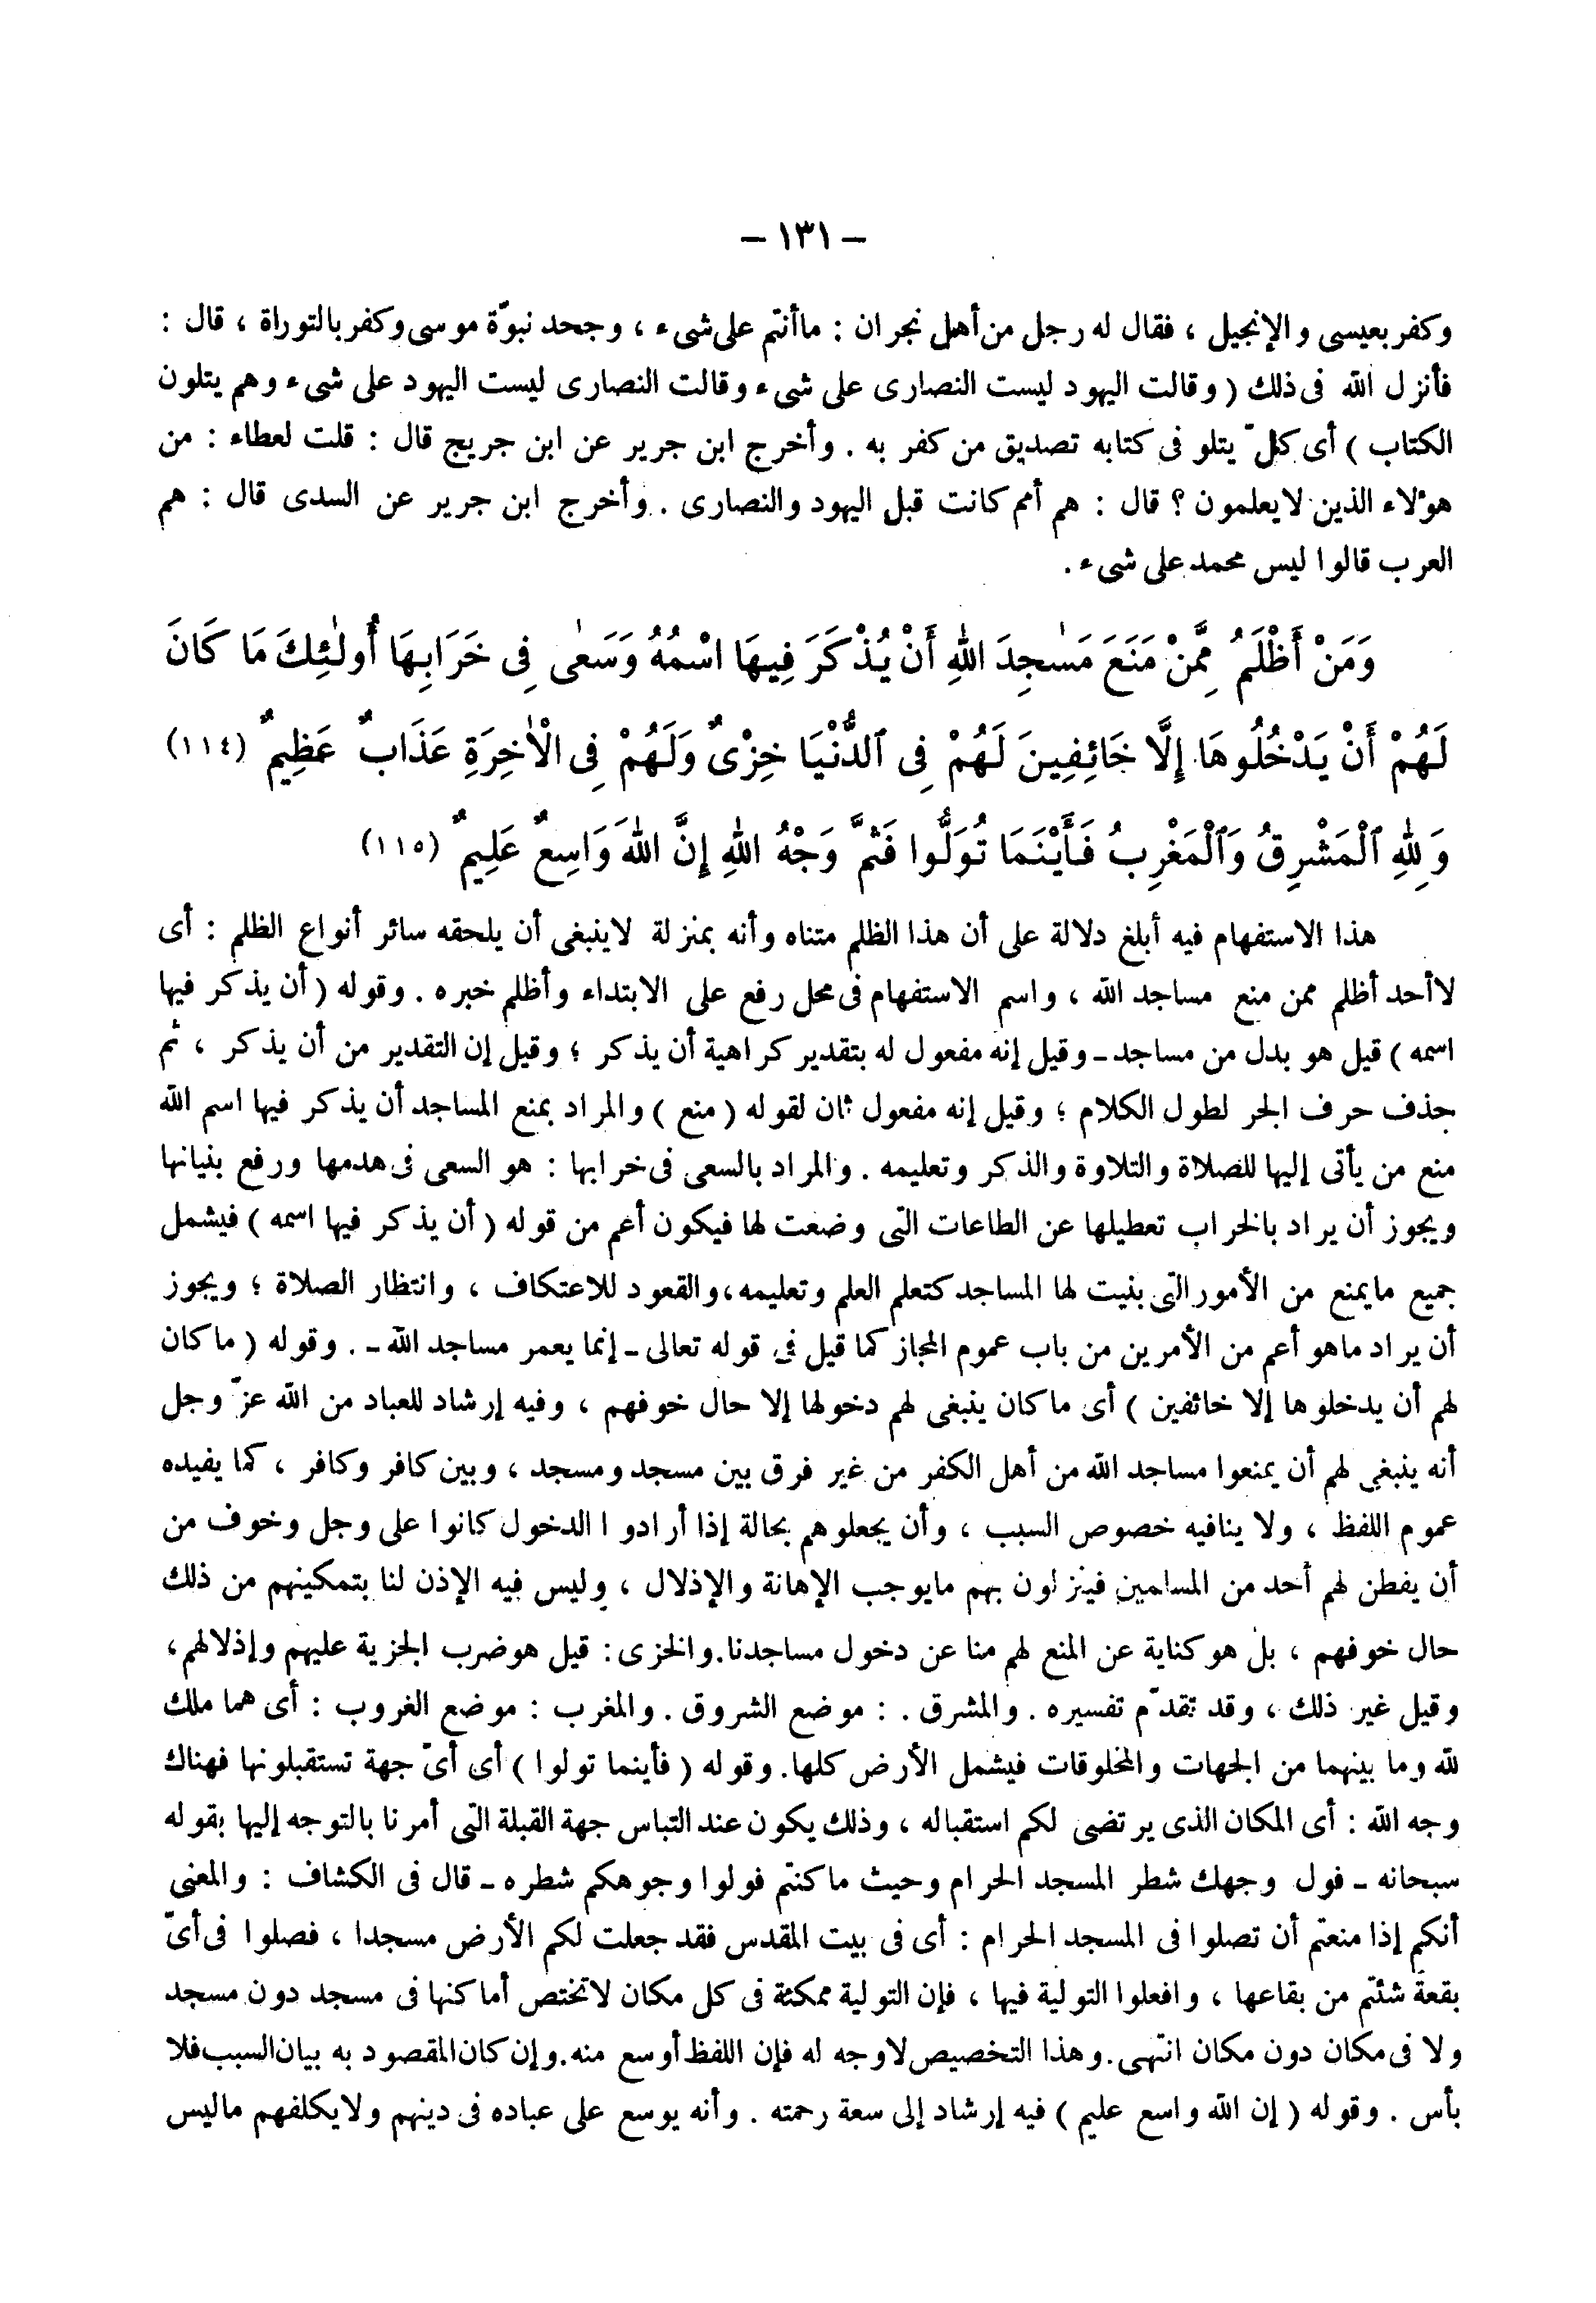 – ١٣١ –
وكفر بعيسى والإنجيل ، فقال له رجل من أهل نجران : ما أنتم على شىء ، وجحد نبوّة موسى وكفر بالتوراة ، قال :
فأنزل الله فى ذلك ( وقالت اليهود ليست النصارى على شىء وقالت النصارى ليست اليهود على شىء وهم يتلون
الكتاب ) أى كلّ يتلو فى كتابه تصديق من كفر به . وأخرج ابن جرير عن ابن جريج قال : قلت لعطاء : من
هؤلاء الذين لا يعلمون ؟ قال : هم أمم كانت قبل اليهود والنصارى . وأخرج ابن جرير عن السدى قال : هم
العرب قالوا ليس محمد على شىء .
وَمَنْ أَظْلَمُ مِمَّنْ مَنَعَ مَسٰجِدَ اللهِ أَنْ يُذْكَرَ فِيهَا اسْمُهُ وَسَعٰى فِى خَرَابِهَا أُولٰئِكَ مَا كَانَ
لَهُمْ أَنْ يَدْخُلُوهَا إِلَّا خَائِفِينَ لَهُمْ فِى ٱلدُّنْيَا خِزْىٌ وَلَهُمْ فِى الْاٰخِرَةِ عَذَابٌ عَظِيمٌ (١١٤)
وَلِلهِ ٱلْمَشْرِقُ وَٱلْمَغْرِبُ فَأَيْنَمَا تُوَلُّوا فَثَمَّ وَجْهُ اللهِ إِنَّ اللهَ وَاسِعٌ عَلِيمٌ (١١٥)
هذا الاستفهام فيه أبلغ دلالة على أن هذا الظلم متناه وأنه بمنزلة لاينبغى أن يلحقه سائر أنواع الظلم : أى
لا أحد أظلم ممن منع مساجد الله ، واسم الاستفهام فى محل رفع على الابتداء وأظلم خبره . وقوله ( أن يذكر فيها
اسمه ) قيل هو بدل من مساجد ـ وقيل إنه مفعول له بتقدير كراهية أن يذكر ؛ وقيل إن التقدير من أن يذكر ، ثم
حذف حرف الجر لطول الكلام ؛ وقيل إنه مفعول ثان لقوله ( منع ) والمراد بمنع المساجد أن يذكر فيها اسم الله
منع من يأتى إليها للصلاة والتلاوة والذكر وتعليمه . والمراد بالسعى فى خرابها : هو السعى فى هدمها ورفع بنيانها
ويجوز أن يراد بالخراب تعطيلها عن الطاعات التى وضعت لها فيكون أعم من قوله ( أن يذكر فيها اسمه ) فيشمل
جميع مايمنع من الأمور التى بنيت لها المساجد كتعلم العلم وتعليمه ، والقعود للاعتكاف ، وانتظار الصلاة ؛ ويجوز
أن يراد ماهو أعم من الأمرين من باب عموم المجاز كما قيل فى قوله تعالى ـ إنما يعمر مساجد الله ـ . وقوله ( ما كان
لهم أن يدخلوها إلا خائفين ) أى ما كان ينبغى لهم دخولها إلا حال خوفهم ، وفيه إرشاد للعباد من الله عزّ وجل
أنه ينبغى لهم أن يمنعوا مساجد الله من أهل الكفر من غير فرق بين مسجد ومسجد ، وبين كافر وكافر ، كما يفيده
عموم اللفظ ، ولا ينافيه خصوص السبب ، وأن يجعلوهم بحالة إذا أرادوا الدخول كانوا على وجل وخوف من
أن يفطن لهم أحد من المسلمين فينزلون بهم مايوجب الإهانة والإذلال ، وليس فيه الإذن لنا بتمكينهم من ذلك
حال خوفهم ، بل هو كناية عن المنع لهم منا عن دخول مساجدنا . والخزى : قيل هو ضرب الجزية عليهم وإذلالهم ،
وقيل غير ذلك ، وقد تقدّم تفسيره . والمشرق . : موضع الشروق . والمغرب : موضع الغروب : أى هما ملك
لله وما بينهما من الجهات والمخلوقات فيشمل الأرض كلها . وقوله ( فأينما تولوا ) أى أىّ جهة تستقبلونها فهناك
وجه الله : أى المكان الذى يرتضى لكم استقباله ، وذلك يكون عند التباس جهة القبلة التى أمرنا بالتوجه إليها بقوله
سبحانه ـ فول وجهك شطر المسجد الحرام وحيث ما كنتم فولوا وجوهكم شطره ـ قال فى الكشاف : والمعنى
أنكم إذا منعتم أن تصلوا فى المسجد الحرام : أى فى بيت المقدس فقد جعلت لكم الأرض مسجدا ، فصلوا فى أىّ
بقعة شئتم من بقاعها ، وافعلوا التولية فيها ، فإن التولية ممكنة فى كل مكان لاتختص أماكنها فى مسجد دون مسجد
ولا فى مكان دون مكان انتهى . وهذا التخصيص لاوجه له فإن اللفظ أوسع منه . وإن كان المقصود به بيان السبب فلا
بأس . وقوله ( إن الله واسع عليم ) فيه إرشاد إلى سعة رحمته . وأنه يوسع على عباده فى دينهم ولايكلفهم ماليس